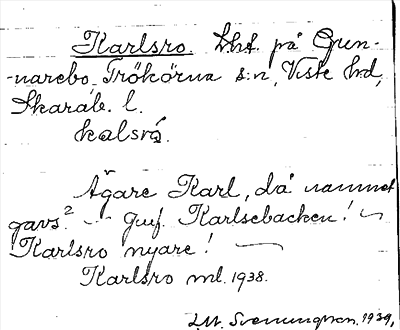 Karlsro. Lht. på Gun-
narebo, Trökörna s:n, Viste hd,
Skarab. l.
kalsró.
Ägare Karl, då namnet
gavs? — Jmf. Karlsebacken! ~
Karlsro nyare! —
Karlsro ml. 1938.
1939,